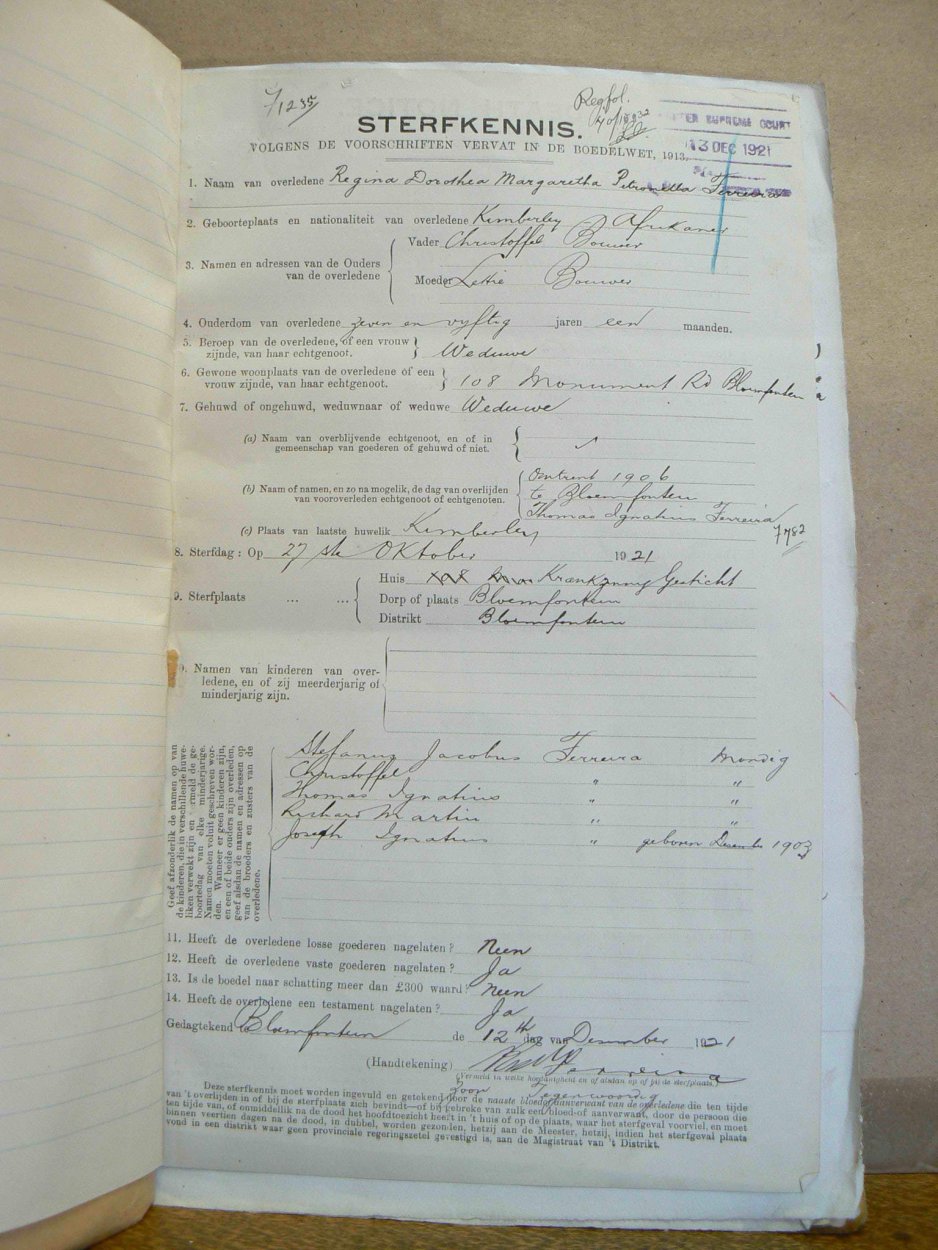 7/1235
Regfol.
STERFKENNIS.
SUPREME COURT
13 DEC 1921
VOLGENS DE VOORSCHRIFTEN VERVAT IN DE BOEDELWET, 1913.
1. Naam van overledene Regina Dorothea Margaretha Petronella Ferreira
2. Geboorteplaats en nationaliteit van overledene Kimberley Afrikaner
Vader Christoffel Bouwer
3. Namen en adressen van de Ouders
van de overledene
Moeder Lettie Bouwer
4. Ouderdom van overledene zeven en vyftig jaren een maanden.
5. Beroep van de overledene, of een vrouw
zijnde, van haar echtgenoot. Weduwe
6. Gewone woonplaats van de overledene of een
vrouw zijnde, van haar echtgenoot. 108 Monument Rd Bloemfontein
7. Gehuwd of ongehuwd, weduwnaar of weduwe Weduwe
(a) Naam van overblijvende echtgenoot, en of in
gemeenschap van goederen of gehuwd of niet.
(b) Naam of namen, en zo na mogelik, de dag van overlijden
van vooroverleden echtgenoot of echtgenoten.
Omtrent 1906
te Bloemfontein
Thomas Ignatius Ferreira
7782
(c) Plaats van laatste huwelik Kimberley
8. Sterfdag: Op 27 ste Oktober 1921
9. Sterfplaats ... ...
Huis Krankzinnig Gesticht
Dorp of plaats Bloemfontein
Distrikt Bloemfontein
Namen van kinderen van over-
ledene, en of zij meerderjarig of
minderjarig zijn.
Geef afzonderlik de namen op van
de kinderen, die in verschillende huwe-
liken verwekt zijn en vermeld de ge-
boortedag van elke minderjarige.
Namen moeten voluit geschreven wor-
den. Wanneer er geen kinderen zijn,
en een of beide ouders zijn overleden,
geef alsdan de namen en adressen op
van de broeders en zusters van de
overledene.
Stefanus Jacobus Ferreira Mondig
Christoffel " "
Thomas Ignatius " "
Richard Martin " "
Joseph Ignatius " geboren Desember 1903
11. Heeft de overledene losse goederen nagelaten? Neen
12. Heeft de overledene vaste goederen nagelaten? Ja
13. Is de boedel naar schatting meer dan £300 waard? Neen
14. Heeft de overledene een testament nagelaten? Ja
Gedagtekend te Bloemfontein de 12th dag van Desember 1921
(Handtekening) Ferreira
(Vermeld in welke hoedanigheid en of alsdan op of bij de sterfplaats.)
Zoon Tegenwoordig
Deze sterfkennis moet worden ingevuld en getekend door de naaste bloedaanverwant van de overledene die ten tijde
van 't overlijden in of bij de sterfplaats zich bevindt—of bij gebreke van zulk een bloed-of aanverwant, door de persoon die
ten tijde van, of onmiddellik na de dood het hoofdtoezicht heeft in 't huis of op de plaats, waar het sterfgeval voorviel, en moet
binnen veertien dagen na de dood, in dubbel, worden gezonden, hetzij aan de Meester, hetzij, indien het sterfgeval plaats
vond in een distrikt waar geen provinciale regeringszetel gevestigd is, aan de Magistraat van 't Distrikt.